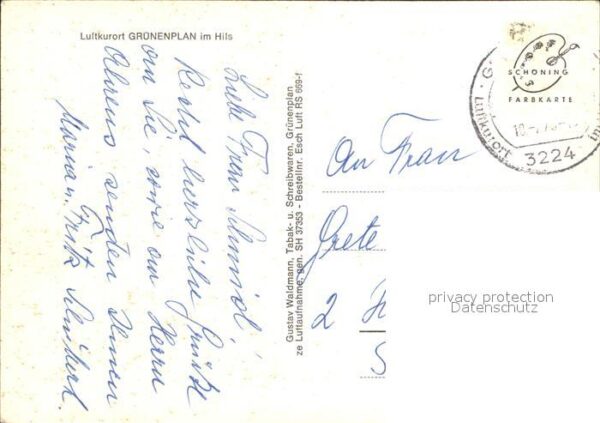 Luftkurort GRÜNENPLAN im Hils
Liebe Frau Schmid!
Recht herzliche Grüße
an Sie, sowie an Herrn
Ahrens senden Ihnen
Maria u. Fritz
Gustav Waldmann, Tabak- u. Schreibwaren, Grünenplan
ze Luftaufnahme, gen. SH 37353 - Bestellnr. Esch Luft RS 669-f
An Frau
Grete
2 H
S
SCHÖNING
FARBKARTE
Luftkurort
3224
privacy protection
Datenschutz